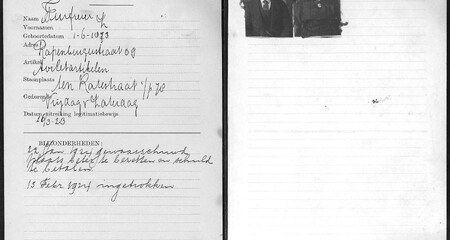 Naam
Voornamen
Geboortedatum 1-6-1873
Adres Rapenburgerstraat
Artikel
Toiletartikelen
Staanplaats
ten Katestraat
Gedurende
Vrijdag Zaterdag
Datum uitreiking legitimatiebewijs
3-23
BIJZONDERHEDEN:
22 Jan 1924 gewaarschuwd
plaats beter te bezetten en schuld
te betalen
15 Febr. 1924 ingetrokken